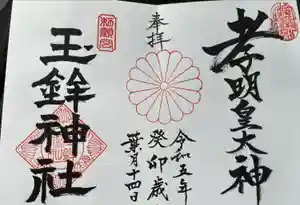 孝明皇大神
奉拝
令和五年
癸卯歳
葉月十四日
玉鉾神社